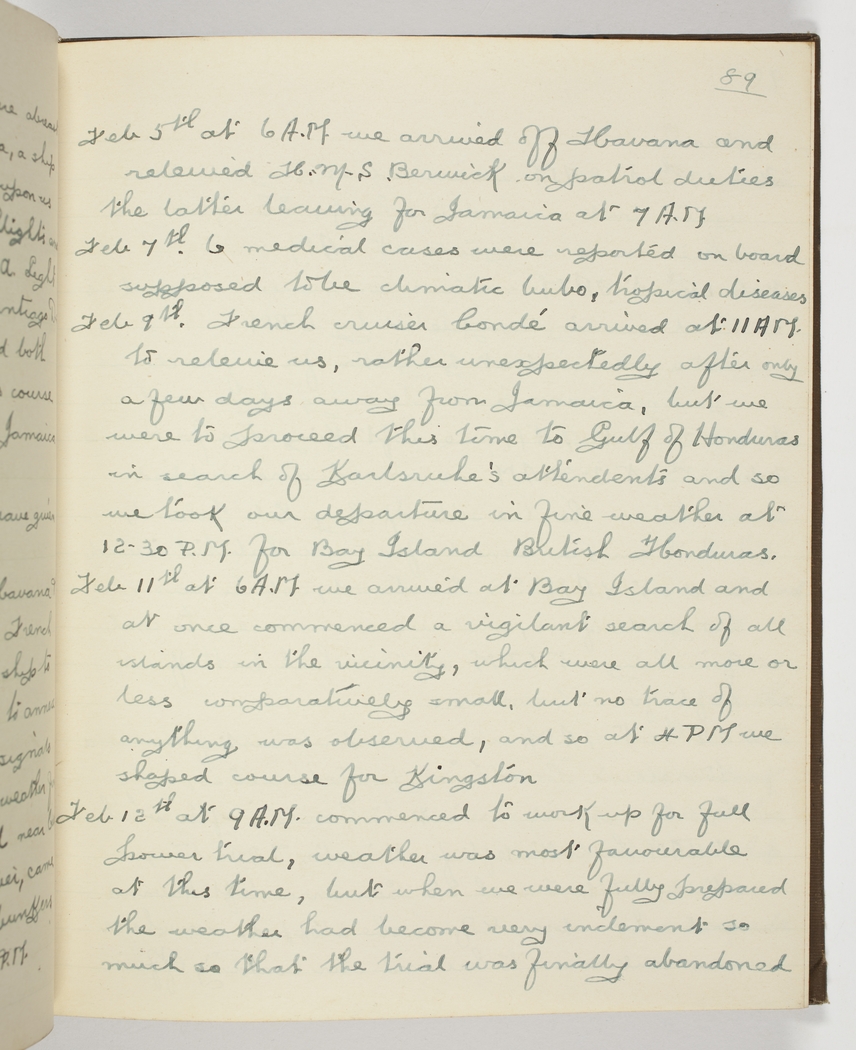 89
Feb 5th at 6 A.M we arrived off Havana and
releived H.M.S Berwick on patrol duties
the latter leaving for Jamaica at 7 A.M
Feb 7th. 6 medical cases were reported on board
supposed to be climatic bubo, tropical diseases
Feb 9th. French cruiser Condé arrived at 11 A.M.
to releive us, rather unexpectedly after only
a few days away from Jamaica, but we
were to proceed this time to Gulf of Honduras
in search of Karlsruhe's attendents and so
we took our departure in fine weather at
12-30 P.M. for Bay Island British Honduras.
Feb 11th at 6 A.M we arrived at Bay Island and
at once commenced a vigilant search of all
islands in the vicinity, which were all more or
less comparatively small, but no trace of
anything was observed, and so at 4 P M we
shaped course for Kingston
Feb 12th at 9 A.M. commenced to work up for full
power trial, weather was most favourable
at this time, but when we were fully prepared
the weather had become very inclement so
much so that the trial was finally abandoned